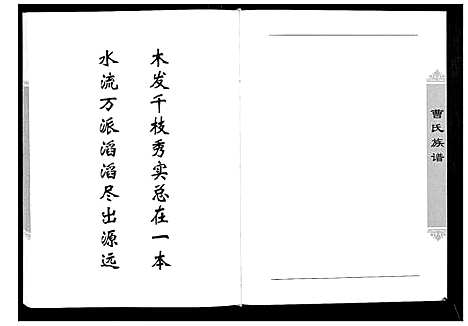 曹氏族谱
木发千枝秀实总在一本
水流万派滔滔尽出源远